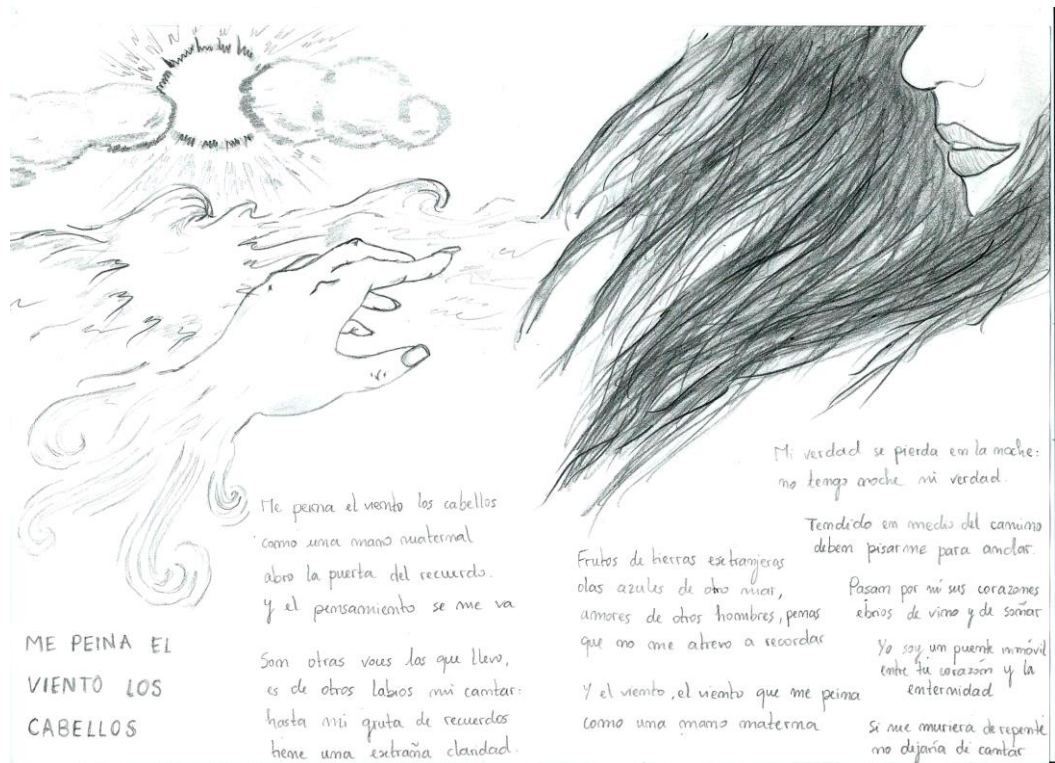 ME PEINA EL
VIENTO LOS
CABELLOS
Me peina el viento los cabellos
como una mano maternal
abro la puerta del recuerdo.
y el pensamiento se me va
Son otras voces las que llevo,
es de otros labios mi cantar:
hasta mi gruta de recuerdos
tiene una extraña claridad.
Frutos de tierras extranjeras
olas azules de otro mar,
amores de otros hombres, penas
que no me atrevo a recordar
Y el viento, el viento que me peina
como una mano materna
Mi verdad se pierda en la noche:
no tengo noche ni verdad.
Tendido en medio del camino
deben pisarme para andar.
Pasan por mi sus corazones
ebrios de vino y de soñar
Yo soy un puente inmóvil
entre tu corazón y la
enternidad
Si me muriera de repente
no dejaría de cantar